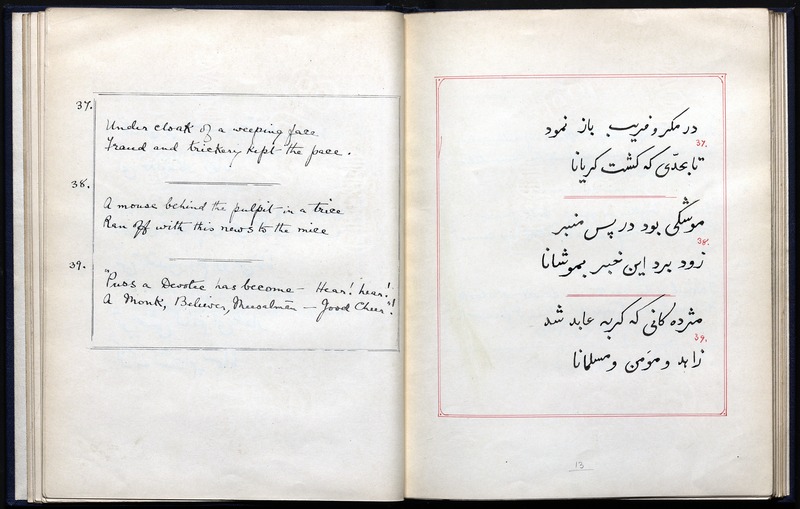 37.
Under cloak of a weeping face
Fraud and trickery kept the pace.
38.
A mouse behind the pulpit in a trice
Ran off with this news to the mice
39.
"Puss a Devotee has become – Hear! hear!
A Monk, Believer, Musalmān – Good Cheer"!
در مکر و فریب باز نمود
37.
تا بحدّی که گشت گریانا
موشکی بود در پس منبر
38.
زود برد این خبر بموشانا
مژده گانی که گربه عابد شد
39.
زاهد و مؤمن و مسلمانا
13